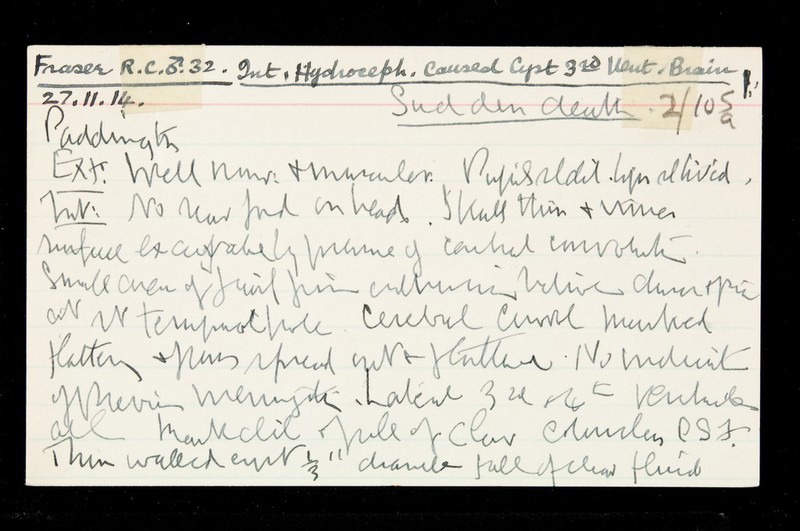 Fraser R.C. ♂. 32. Int. Hydroceph. Caused Cyst 3rd Vent. Brain
27.11.14. Sudden death. 2/10 5/a
Paddington
Ext: Well nour. & muscular. Pupils sl dil. lips sl livid.
Int: No scalp on head. Skull thin & inner
surface by pressure of convolut.
Small area of firm between dura & pia
at rt temporal pole. Cerebral convol marked
flattening & pons spread out & flattened. No indicat
of previous meningitis. Lateral 3rd & 4th Ventricles
all mark dil & full of clear colourless CSF.
Thin walled cyst 1/3" diamete full of clear fluid